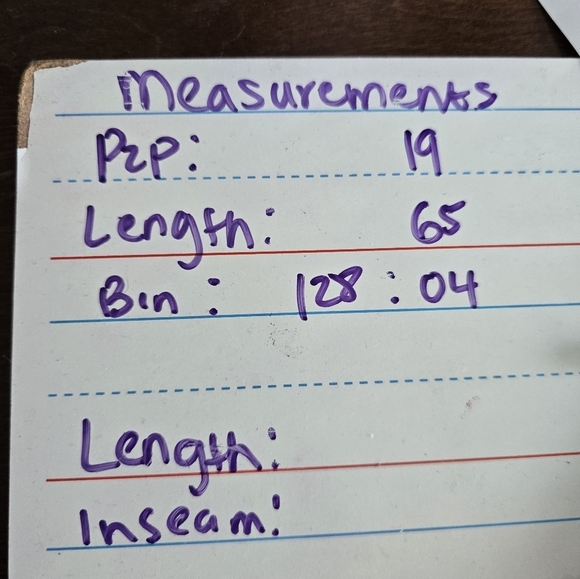 Measurements
P2P: 19
Length: 65
Bin: 128:04
Length:
Inseam: